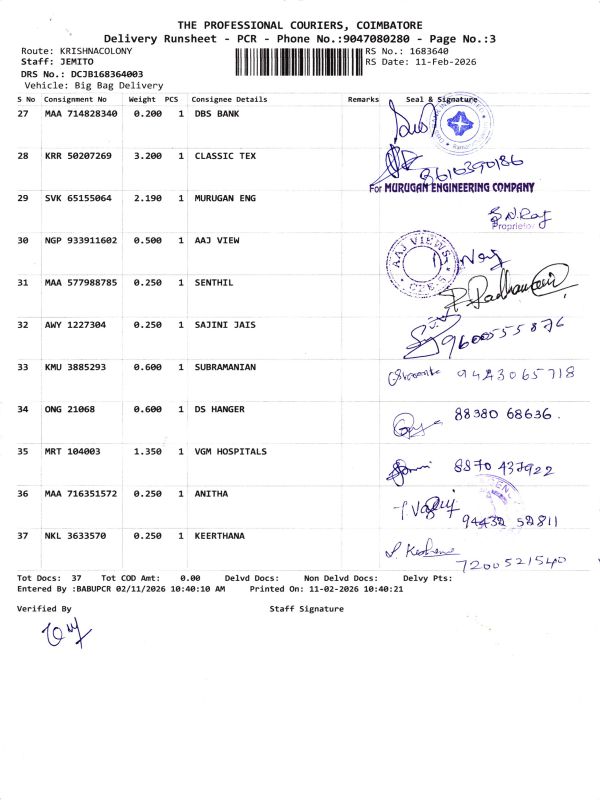 THE PROFESSIONAL COURIERS, COIMBATORE
Delivery Runsheet - PCR - Phone No.:9047080280 - Page No.:3
Route: KRISHNACOLONY RS No.: 1683640
Staff: JEMITO RS Date: 11-Feb-2026
DRS No.: DCJB168364003
Vehicle: Big Bag Delivery
S No Consignment No Weight PCS Consignee Details Remarks Seal & Signature
27 MAA 714828340 0.200 1 DBS BANK
28 KRR 50207269 3.200 1 CLASSIC TEX
For MURUGAN ENGINEERING COMPANY
29 SVK 65155064 2.190 1 MURUGAN ENG
Proprietor
30 NGP 933911602 0.500 1 AAJ VIEW
AAJ VIEWS
31 MAA 577988785 0.250 1 SENTHIL
32 AWY 1227304 0.250 1 SAJINI JAIS 9600555876
33 KMU 3885293 0.600 1 SUBRAMANIAN 9443065718
34 ONG 21068 0.600 1 DS HANGER 88380 68636.
35 MRT 104003 1.350 1 VGM HOSPITALS 8870 437922
36 MAA 716351572 0.250 1 ANITHA
37 NKL 3633570 0.250 1 KEERTHANA 7200521540
Tot Docs: 37 Tot COD Amt: 0.00 Delvd Docs: Non Delvd Docs: Delvy Pts:
Entered By :BABUPCR 02/11/2026 10:40:10 AM Printed On: 11-02-2026 10:40:21
Verified By Staff Signature